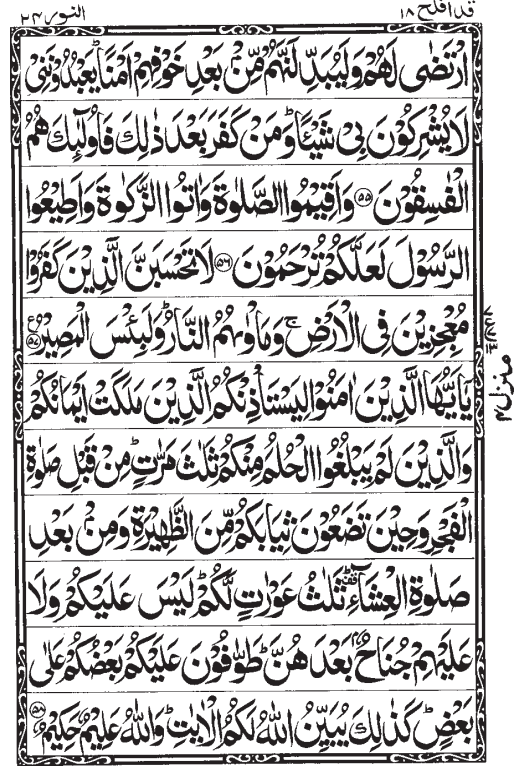 قد افلح ١٨
النور ٢٤
ارْتَضٰى لَهُمْ وَلَيُبَدِّلَنَّهُمْ مِّنْۢ بَعْدِ خَوْفِهِمْ اَمْنًا ؕ يَعْبُدُوْنَنِيْ
لَا يُشْرِكُوْنَ بِيْ شَيْـًٔا ؕ وَمَنْ كَفَرَ بَعْدَ ذٰلِكَ فَاُولٰٓئِكَ هُمُ
الْفٰسِقُوْنَ ۝٥٥ وَاَقِيْمُوا الصَّلٰوةَ وَاٰتُوا الزَّكٰوةَ وَاَطِيْعُوا
الرَّسُوْلَ لَعَلَّكُمْ تُرْحَمُوْنَ ۝٥٦ لَا تَحْسَبَنَّ الَّذِيْنَ كَفَرُوْا
مُعْجِزِيْنَ فِي الْاَرْضِ ۚ وَمَاْوٰىهُمُ النَّارُ ؕ وَلَبِئْسَ الْمَصِيْرُ ۝٥٧ ع
يٰٓاَيُّهَا الَّذِيْنَ اٰمَنُوْا لِيَسْتَاْذِنْكُمُ الَّذِيْنَ مَلَكَتْ اَيْمَانُكُمْ
وَالَّذِيْنَ لَمْ يَبْلُغُوا الْحُلُمَ مِنْكُمْ ثَلٰثَ مَرّٰتٍ ؕ مِنْ قَبْلِ صَلٰوةِ
الْفَجْرِ وَحِيْنَ تَضَعُوْنَ ثِيَابَكُمْ مِّنَ الظَّهِيْرَةِ وَمِنْۢ بَعْدِ
صَلٰوةِ الْعِشَآءِ ۟ؕ ثَلٰثُ عَوْرٰتٍ لَّكُمْ ؕ لَيْسَ عَلَيْكُمْ وَلَا
عَلَيْهِمْ جُنَاحٌۢ بَعْدَهُنَّ ؕ طَوّٰفُوْنَ عَلَيْكُمْ بَعْضُكُمْ عَلٰى
بَعْضٍ ؕ كَذٰلِكَ يُبَيِّنُ اللّٰهُ لَكُمُ الْاٰيٰتِ ؕ وَاللّٰهُ عَلِيْمٌ حَكِيْمٌ ۝٥٨
منزل ٤